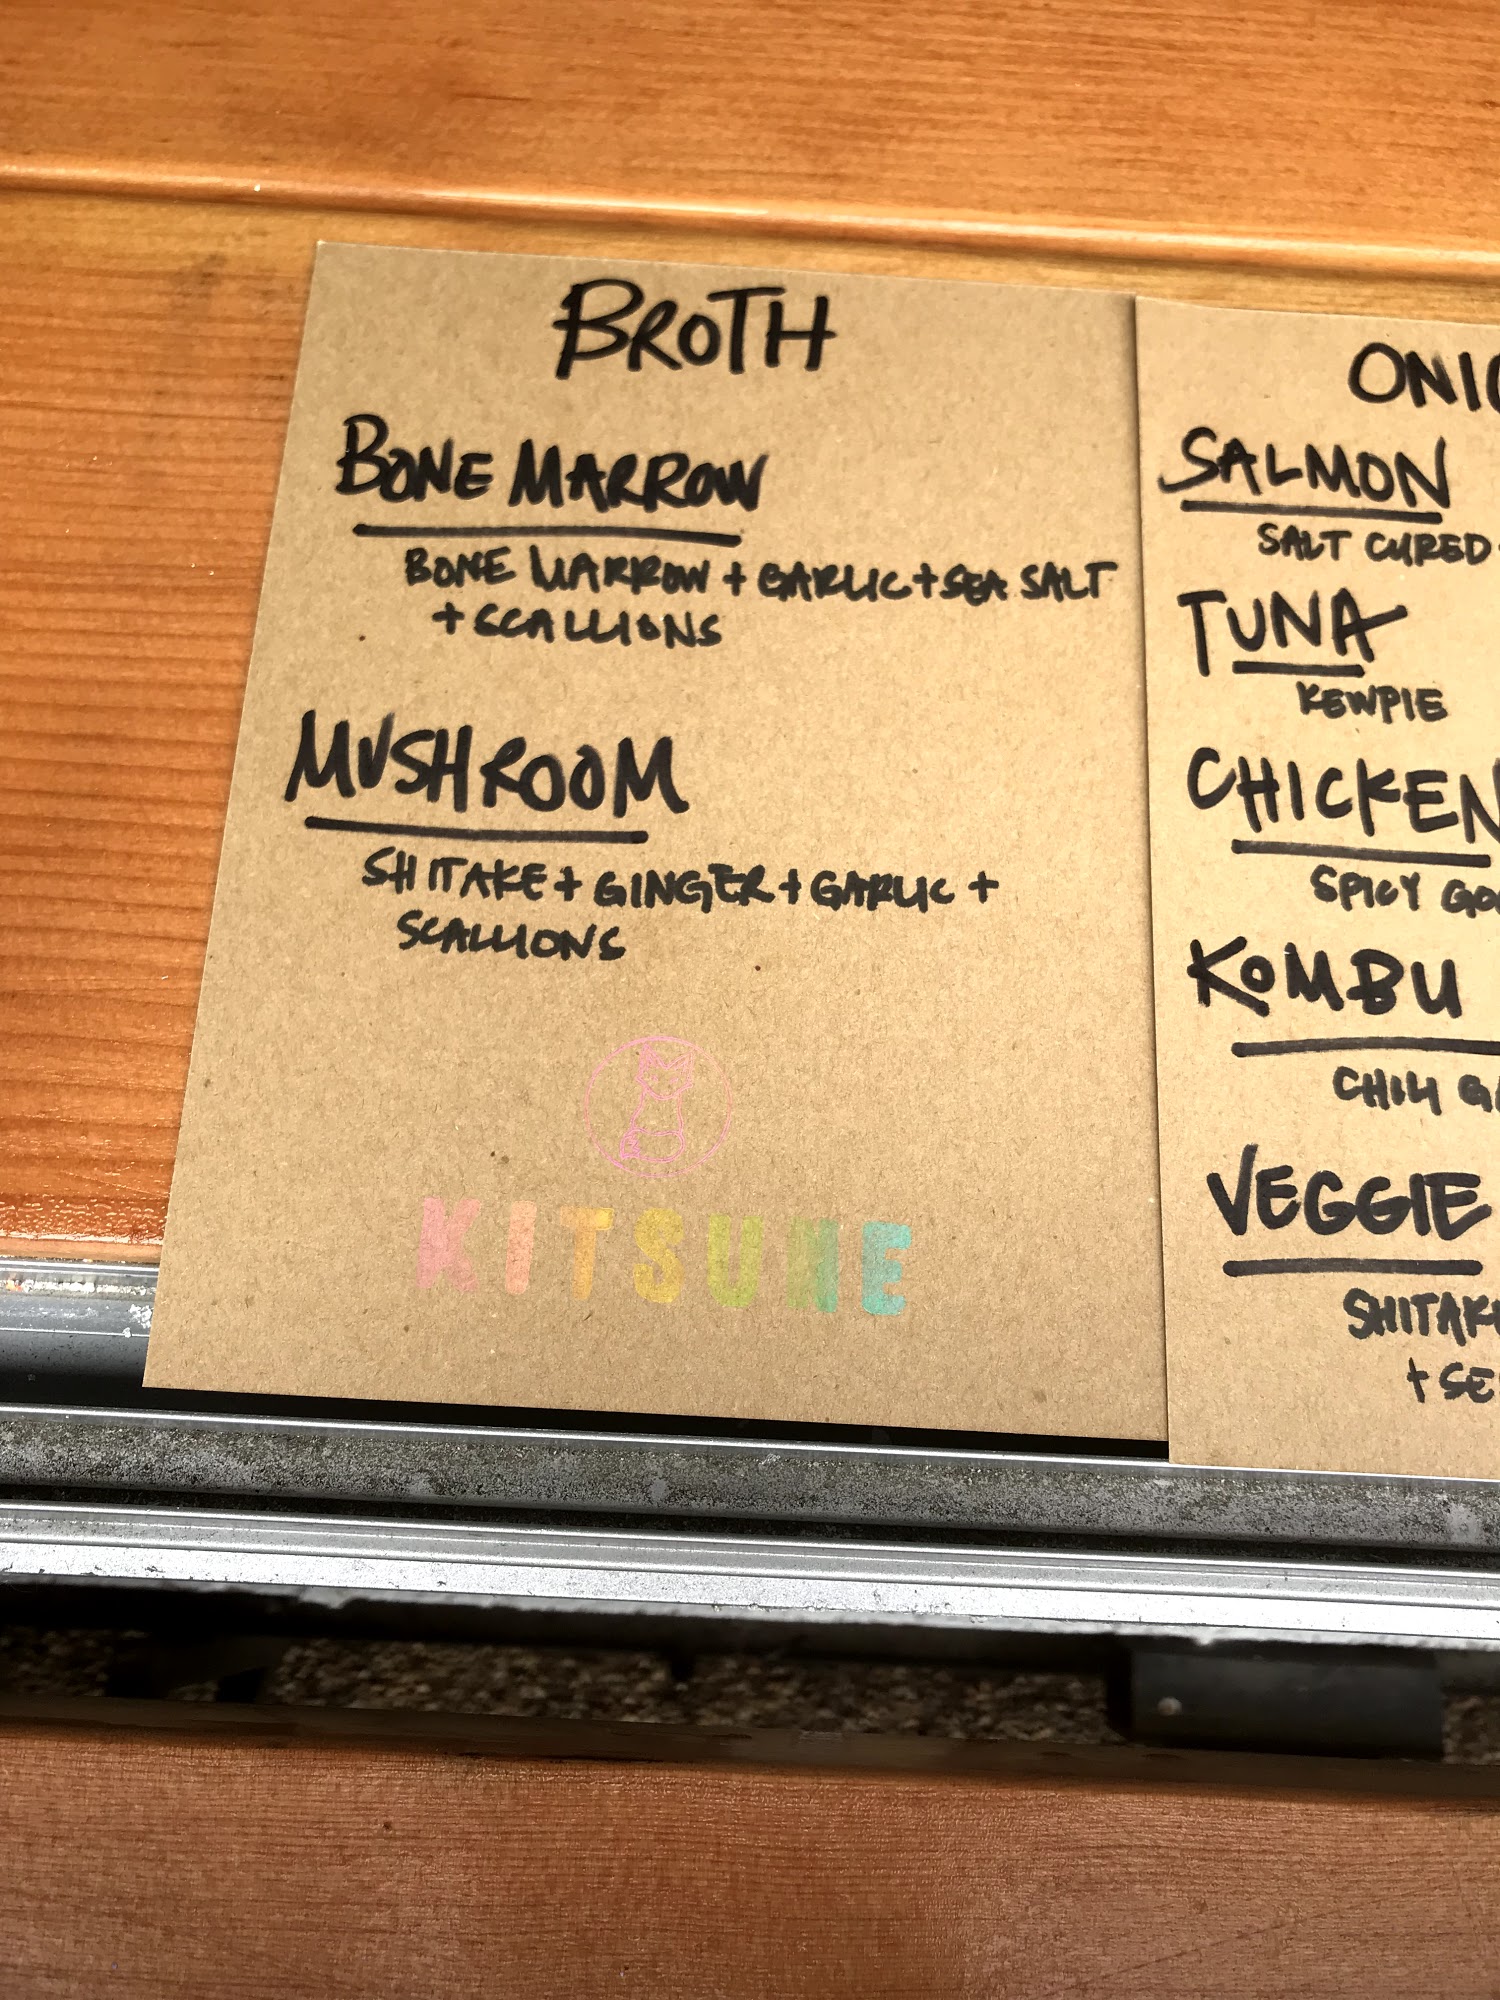 BROTH
BONE MARROW
BONE MARROW + GARLIC + SEA SALT
+ SCALLIONS
MUSHROOM
SHITAKE + GINGER + GARLIC +
SCALLIONS
KITSUNE
SALMON
SALT CURED
TUNA
KEWPIE
CHICKEN
SPICY
KOMBU
CHILI
VEGGIE